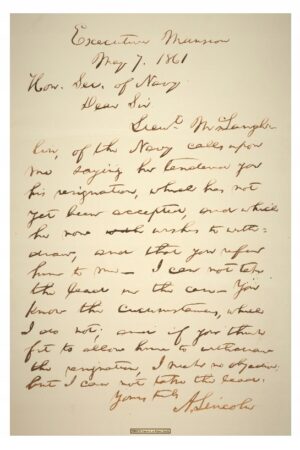 Executive Mansion
May 7. 1861
Hon. Sec. of Navy
Dear Sir
Lieut. McLaugh-
lin, of the Navy calls upon
me saying he tendered you
his resignation, which has not
yet been accepted, and which
he now wishes to with-
draw, and that you refer
him to me— I can not take
the lead in the case— You
know the circumstances, which
I do not; and if you think
fit to allow him to withdraw
the resignation, I make no objection
but I can not take the lead.
Yours truly
A. Lincoln